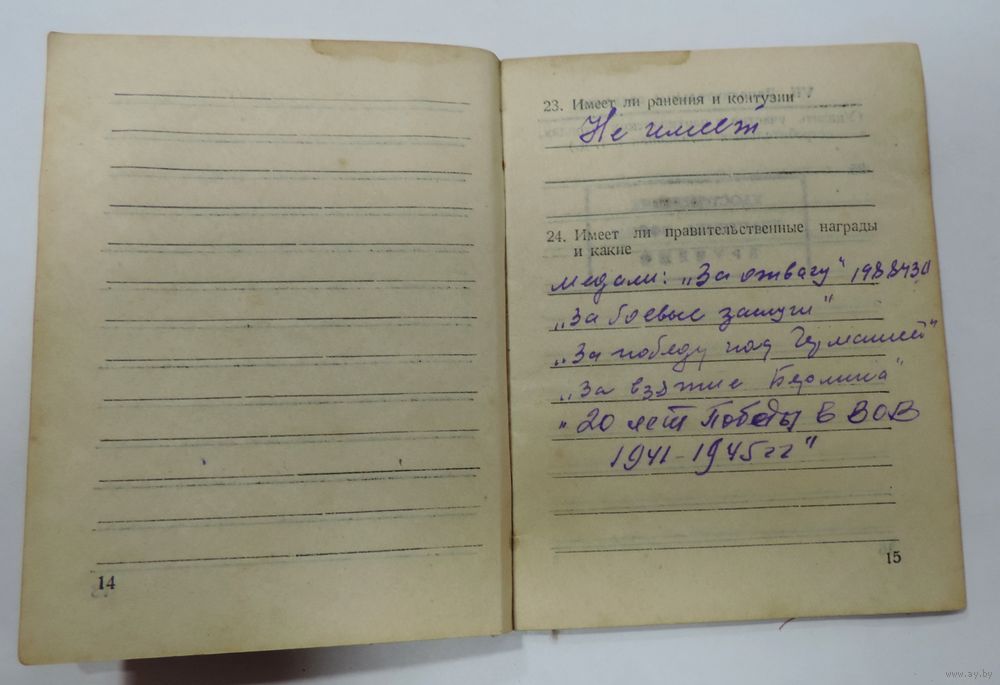 14
23. Имеет ли ранения и контузии
Не имеет
24. Имеет ли правительственные награды
и какие
медали: „За отвагу"
„За боевые заслуги"
„За победу над Германией"
„За взятие Берлина"
„20 лет Победы в ВОВ
1941-1945гг"
15
www.ay.by